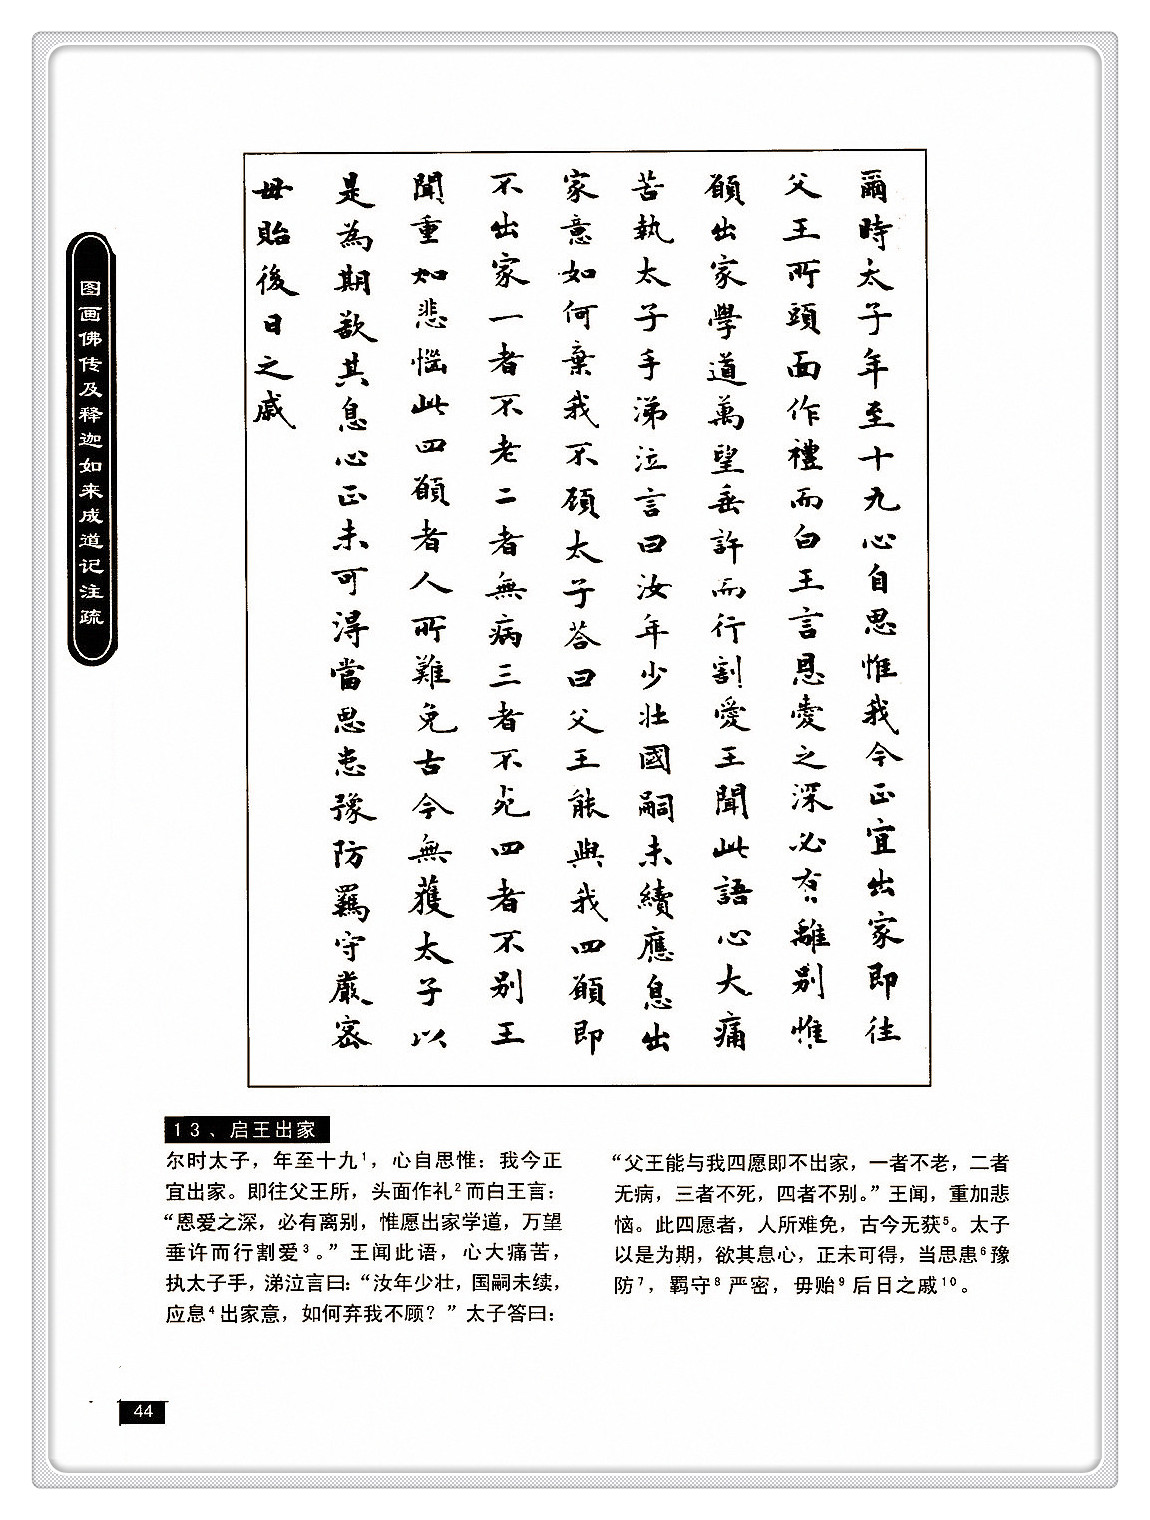 图画佛传及释迦如来成道记注疏
爾時太子年至十九心自思惟我今正宜出家即往
父王所頭面作禮而白王言恩愛之深必有離別惟
願出家學道萬望垂許而行割愛王聞此語心大痛
苦執太子手涕泣言曰汝年少壯國嗣未續應息出
家意如何棄我不顧太子荅曰父王能與我四願即
不出家一者不老二者無病三者不死四者不別王
聞重加悲惱此四願者人所難免古今無獲太子以
是為期欲其息心正未可得當思患豫防羈守嚴密
毋貽後日之戚
13、启王出家
尔时太子，年至十九¹，心自思惟：我今正
宜出家。即往父王所，头面作礼²而白王言：
“恩爱之深，必有离别，惟愿出家学道，万望
垂许而行割爱³。”王闻此语，心大痛苦，
执太子手，涕泣言曰：“汝年少壮，国嗣未续，
应息⁴出家意，如何弃我不顾？”太子答曰：
“父王能与我四愿即不出家，一者不老，二者
无病，三者不死，四者不别。”王闻，重加悲
恼。此四愿者，人所难免，古今无获⁵。太子
以是为期，欲其息心，正未可得，当思患⁶豫
防⁷，羁守⁸严密，毋贻⁹后日之戚¹⁰。
44